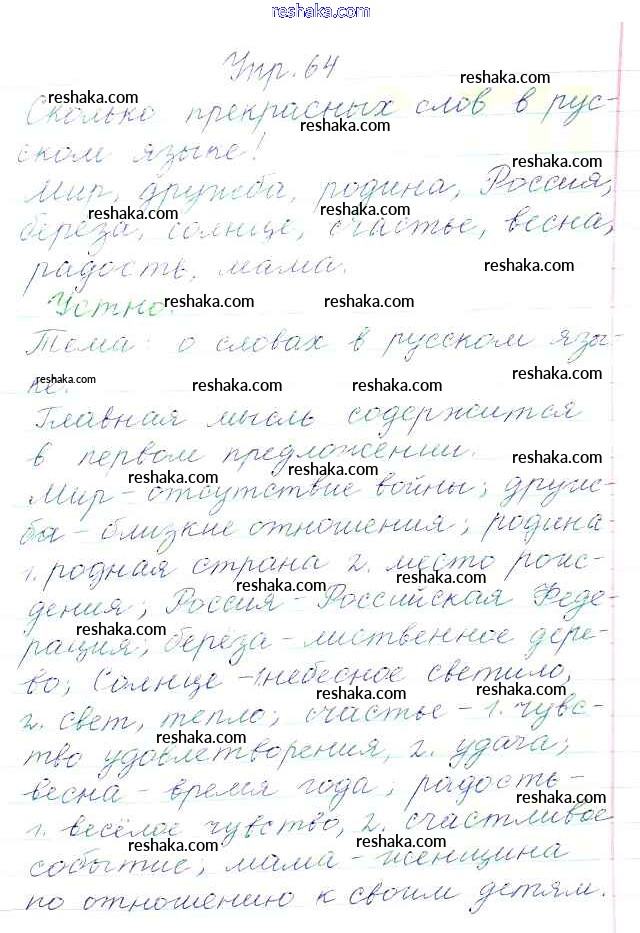 reshaka.com
Упр. 64
reshaka.com
reshaka.com
Сколько прекрасных слов в рус-
reshaka.com
ском языке!
reshaka.com
Мир, дружба, родина, Россия,
reshaka.com
reshaka.com
берёза, солнце, счастье, весна,
радость, мама.
reshaka.com
Устно.
reshaka.com
reshaka.com
Тема: о словах в русском язы-
ке.
reshaka.com
reshaka.com
reshaka.com
Главная мысль содержится
reshaka.com
в первом предложении.
reshaka.com
reshaka.com
Мир – отсутствие войны; друж-
ба – близкие отношения; родина –
reshaka.com
reshaka.com
1. родная страна 2. место рож-
reshaka.com
reshaka.com
дения; Россия – Российская Феде-
reshaka.com
рация; берёза – лиственное дере-
reshaka.com
во; солнце – 1. небесное светило,
reshaka.com
reshaka.com
2. свет, тепло; счастье – 1. чувс-
reshaka.com
тво удовлетворения, 2. удача;
весна – время года; радость –
reshaka.com
1. весёлое чувство, 2. счастливое
reshaka.com
reshaka.com
событие; мама – женщина
по отношению к своим детям.
reshaka.com
reshaka.com